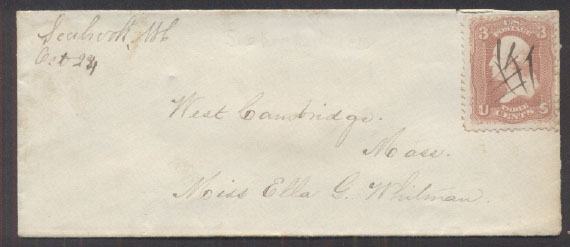 Seabrook, NH
Oct 24
3 U.S. 3
POSTAGE
West Cambridge.
Mass.
Miss Ella G. Whitman.
U THREE S
CENTS